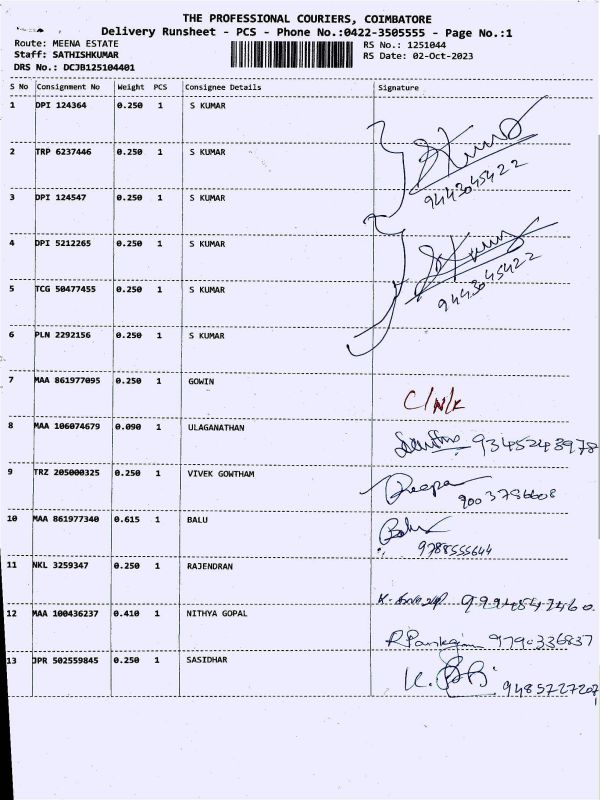 THE PROFESSIONAL COURIERS, COIMBATORE
Delivery Runsheet - PCS - Phone No.:0422-3505555 - Page No.:1
Route: MEENA ESTATE RS No.: 1251044
Staff: SATHISHKUMAR RS Date: 02-Oct-2023
DRS No.: DCJB125104401
S No Consignment No Weight PCS Consignee Details Signature
1 DPI 124364 0.250 1 S KUMAR
2 TRP 6237446 0.250 1 S KUMAR
9443045422
3 DPI 124547 0.250 1 S KUMAR
4 DPI 5212265 0.250 1 S KUMAR
5 TCG 50477455 0.250 1 S KUMAR
9443045422
6 PLN 2292156 0.250 1 S KUMAR
7 MAA 861977095 0.250 1 GOWIN
C/N/K
8 MAA 106074679 0.090 1 ULAGANATHAN
9345243978
9 TRZ 205000325 0.250 1 VIVEK GOWTHAM
Deepa
9003786608
10 MAA 861977340 0.615 1 BALU
Balu
9788555644
11 NKL 3259347 0.250 1 RAJENDRAN
9994847460
12 MAA 100436237 0.410 1 NITHYA GOPAL
9790336837
13 JPR 502559845 0.250 1 SASIDHAR
9485727207